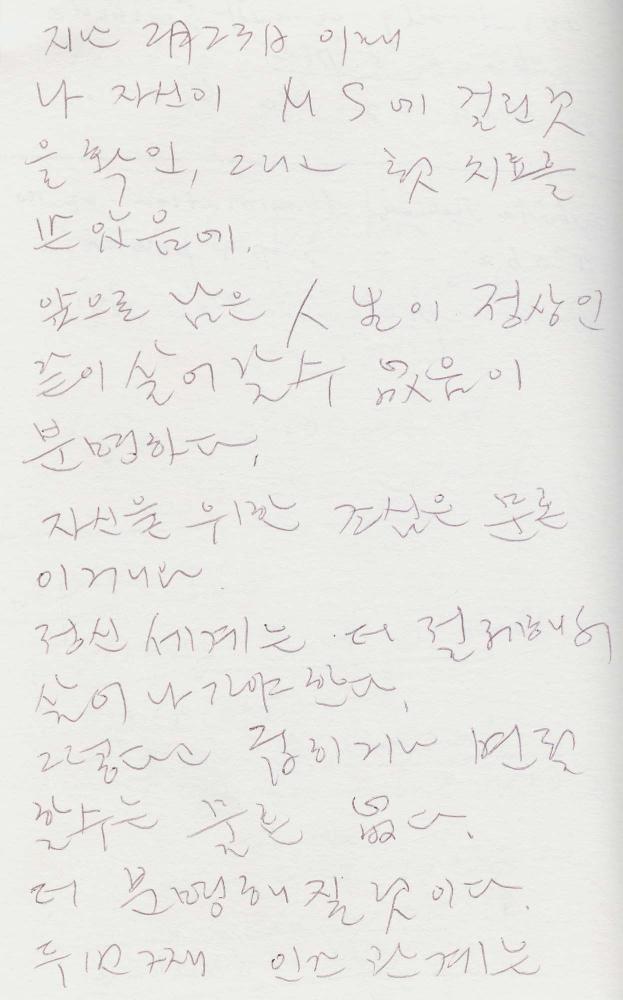 지난 2月23日 이래
나 자신이 MS에 걸린것
을 확인, 그리고 첫 치료를
받았음에.
앞으로 남은 人生이 정상인
같이 살어갈수 없음이
분명하다.
자신을 위한 조심은 물론
이거니와
정신세계는 더 절제해서
살어 나가야 한다.
그렇다고 급히거나 변절
할수는 물론 없다.
더 분명해 질 것이다.
두번째 인간관계는